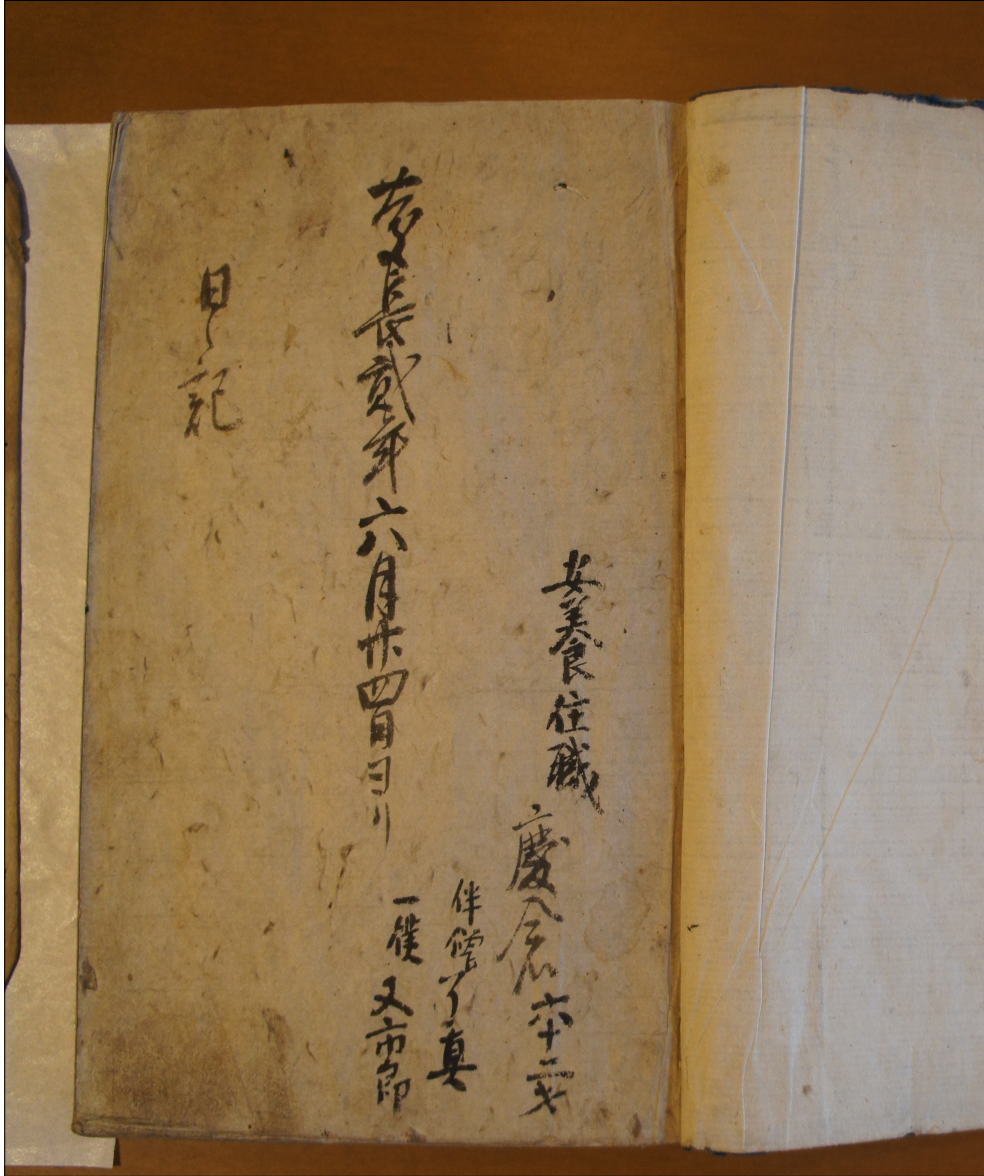 安養住職
慶念 六十二才
伴僧了真
一僕 又市郎
慶長貳年六月廿四日ヨリ
日々記